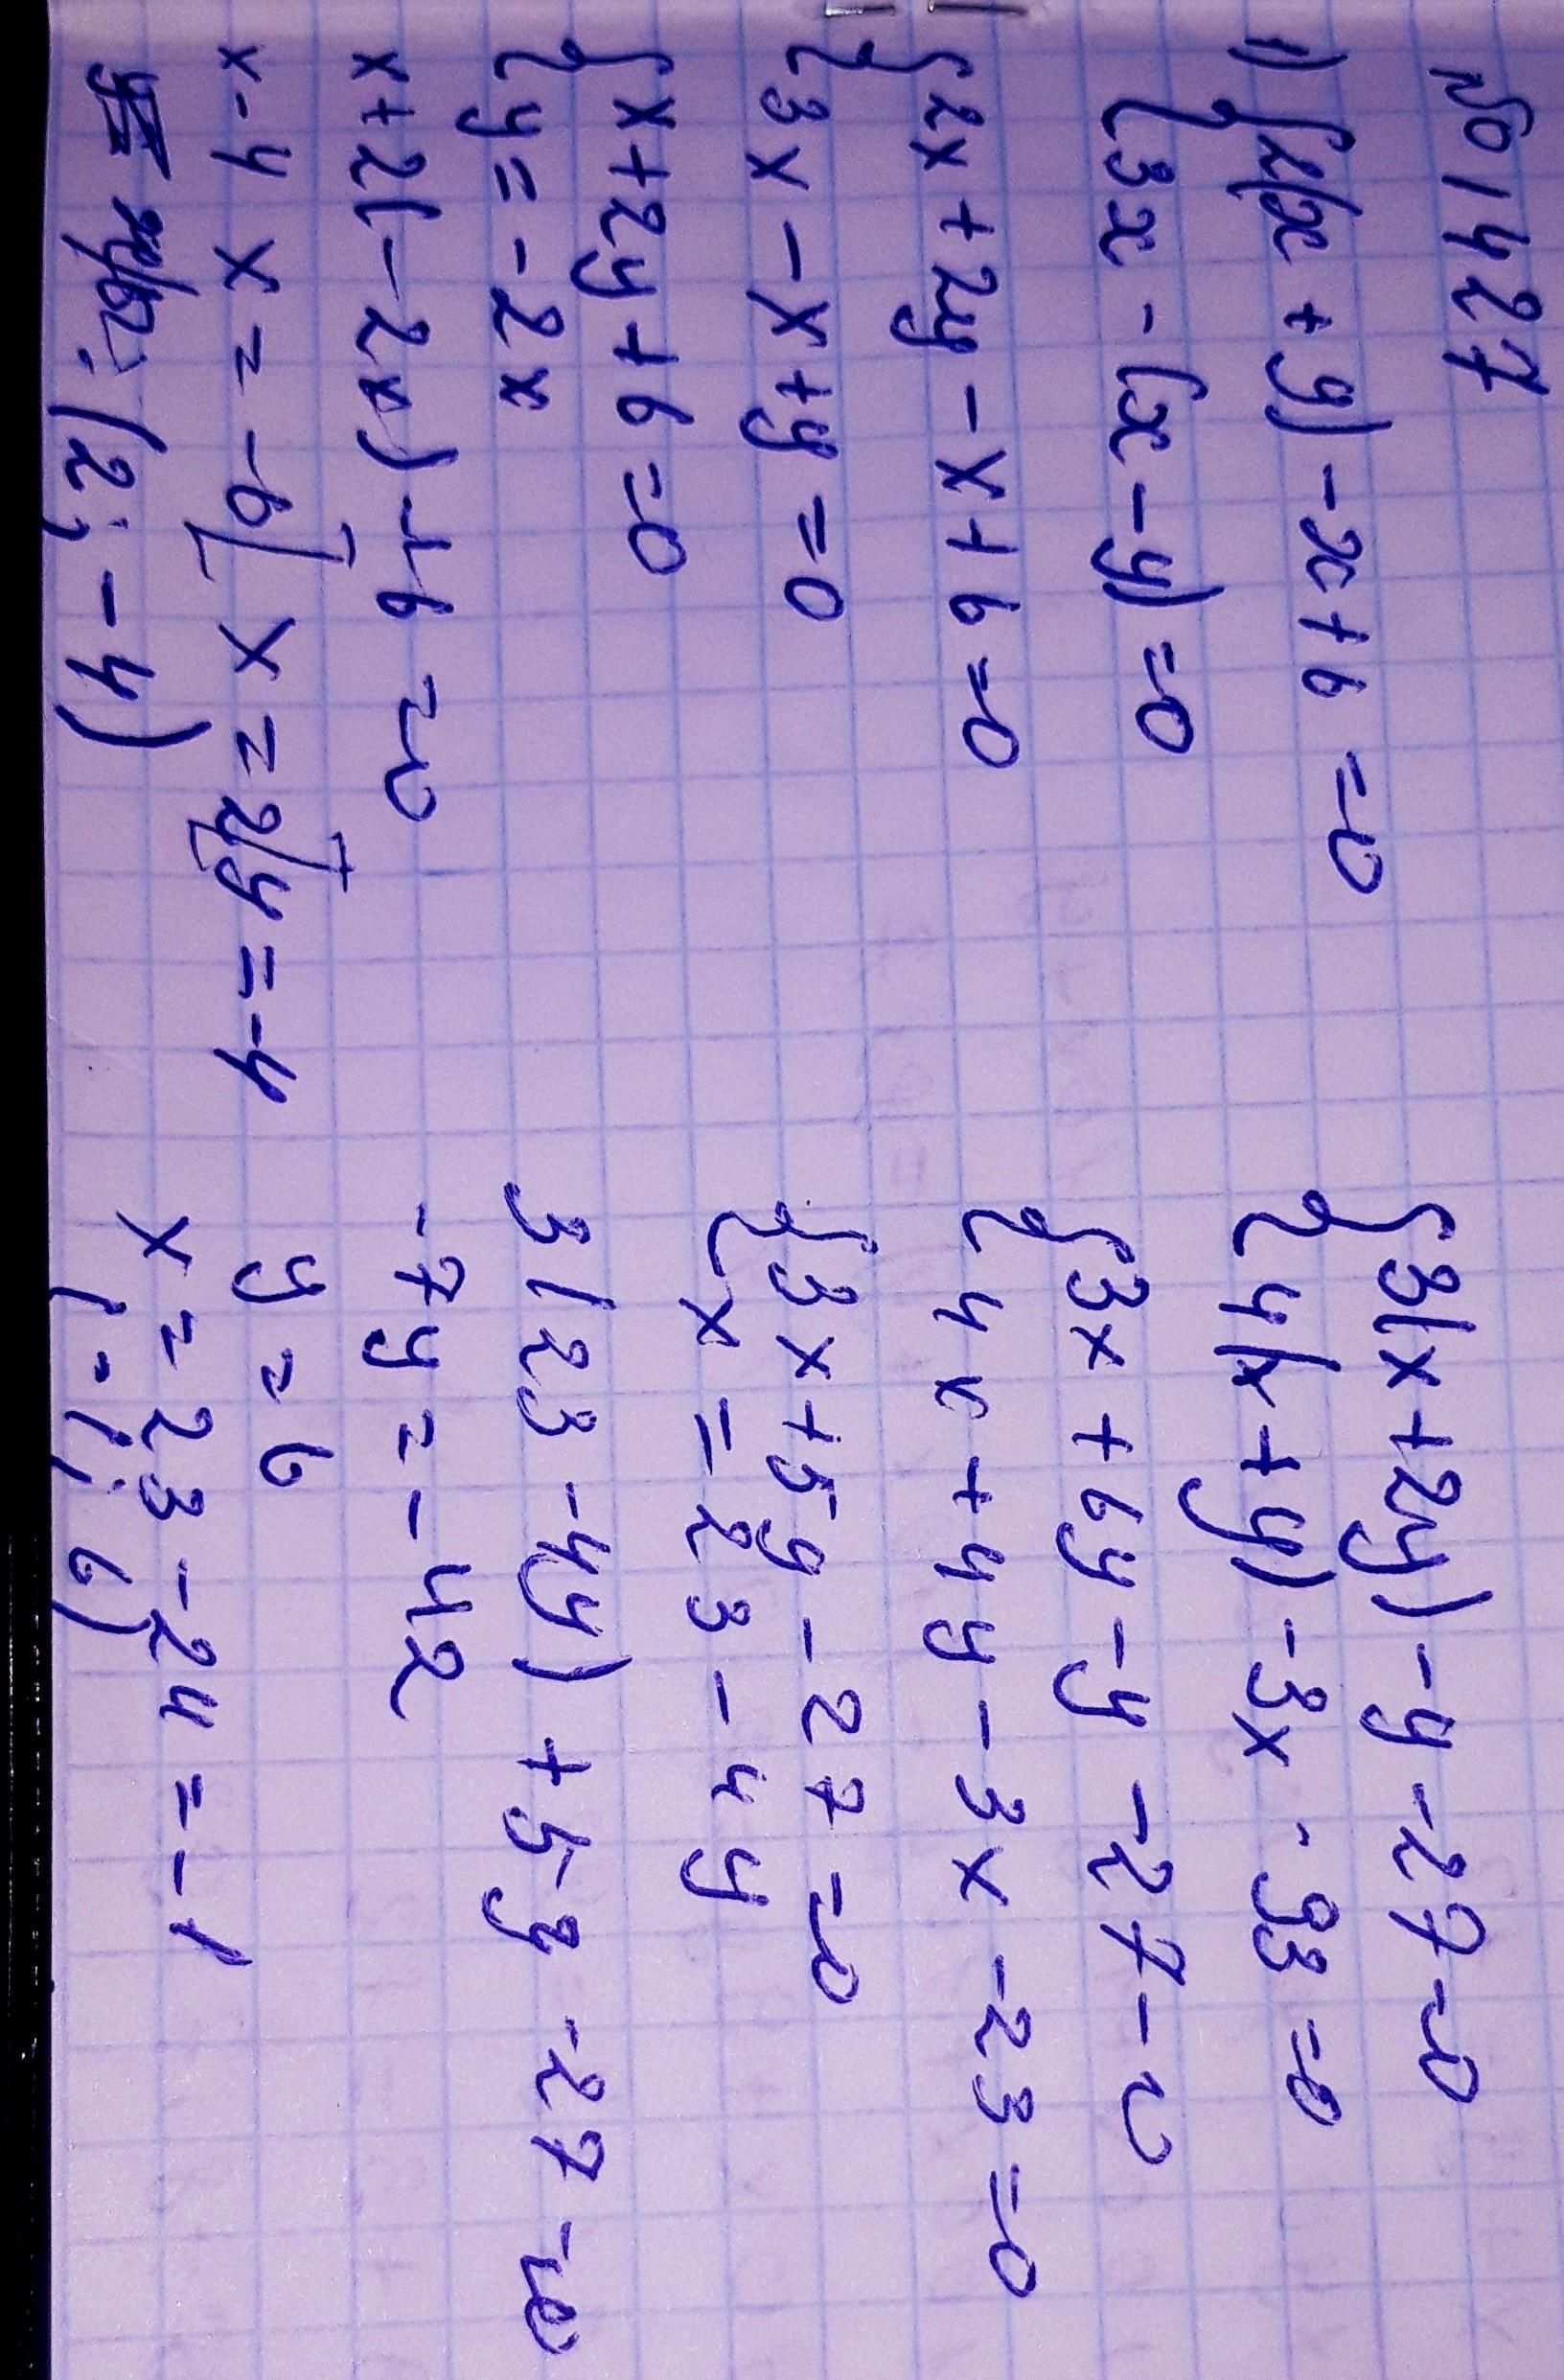 №1427
1) {2(x + y) - x + 6 = 0
{3x - (x - y) = 0
{2x + 2y - x + 6 = 0
{3x - x + y = 0
{x + 2y + 6 = 0
{y = -2x
x + 2(-2x) + 6 = 0
x - 4x = -6 | x = 2 | y = -4
(2; -4)
{3(x + 2y) - y - 27 = 0
{4(x + y) - 3x - 23 = 0
{3x + 6y - y - 27 = 0
{4x + 4y - 3x - 23 = 0
{3x + 5y - 27 = 0
{x = 23 - 4y
3(23 - 4y) + 5y - 27 = 0
-7y = -42
y = 6
x = 23 - 24 = -1
(-1; 6)